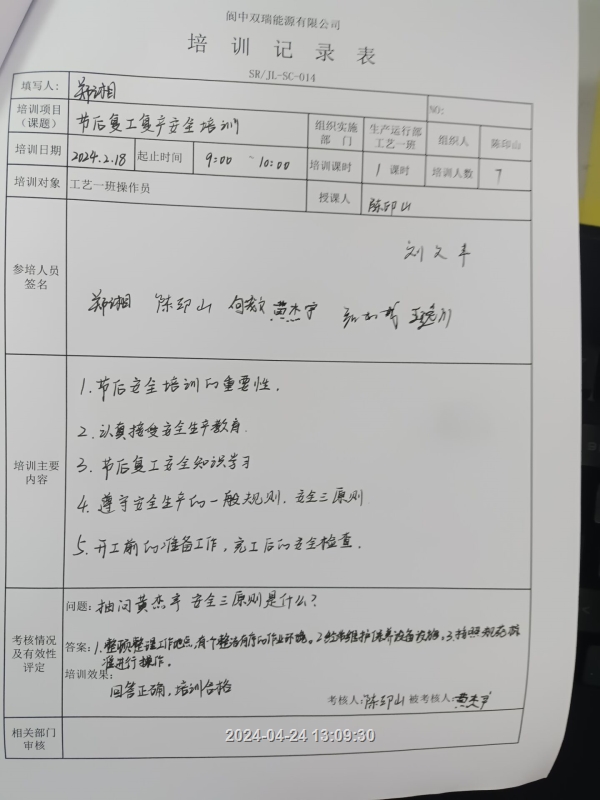 阆中双瑞能源有限公司
培训记录表
SR/JL-SC-014
填写人: 郑湘 NO:
培训项目(课题) 节后复工复产安全培训 组织实施部门 生产运行部工艺一班 组织人 陈印山
培训日期 2024.2.18 起止时间 9:00 ~ 10:00 培训课时 1 课时 培训人数 7
培训对象 工艺一班操作员 授课人 陈印山
刘文丰
参培人员签名
郑湘 陈印山 黄杰宇
培训主要内容
1.节后安全培训的重要性.
2.认真接受安全生产教育.
3.节后复工安全知识学习
4.遵守安全生产的一般规则.安全三原则
5.开工前的准备工作,完工后的安全检查.
考核情况及有效性评定
问题: 抽问黄杰宇 安全三原则是什么?
答案: 1.整顿整理工作地点,有个整洁有序的作业环境。2.经常维护保养设备设施。3.按照规范标
准进行操作。
培训效果:
回答正确,培训合格
考核人: 陈印山 被考核人: 黄杰宇
相关部门审核
2024-04-24 13:09:30